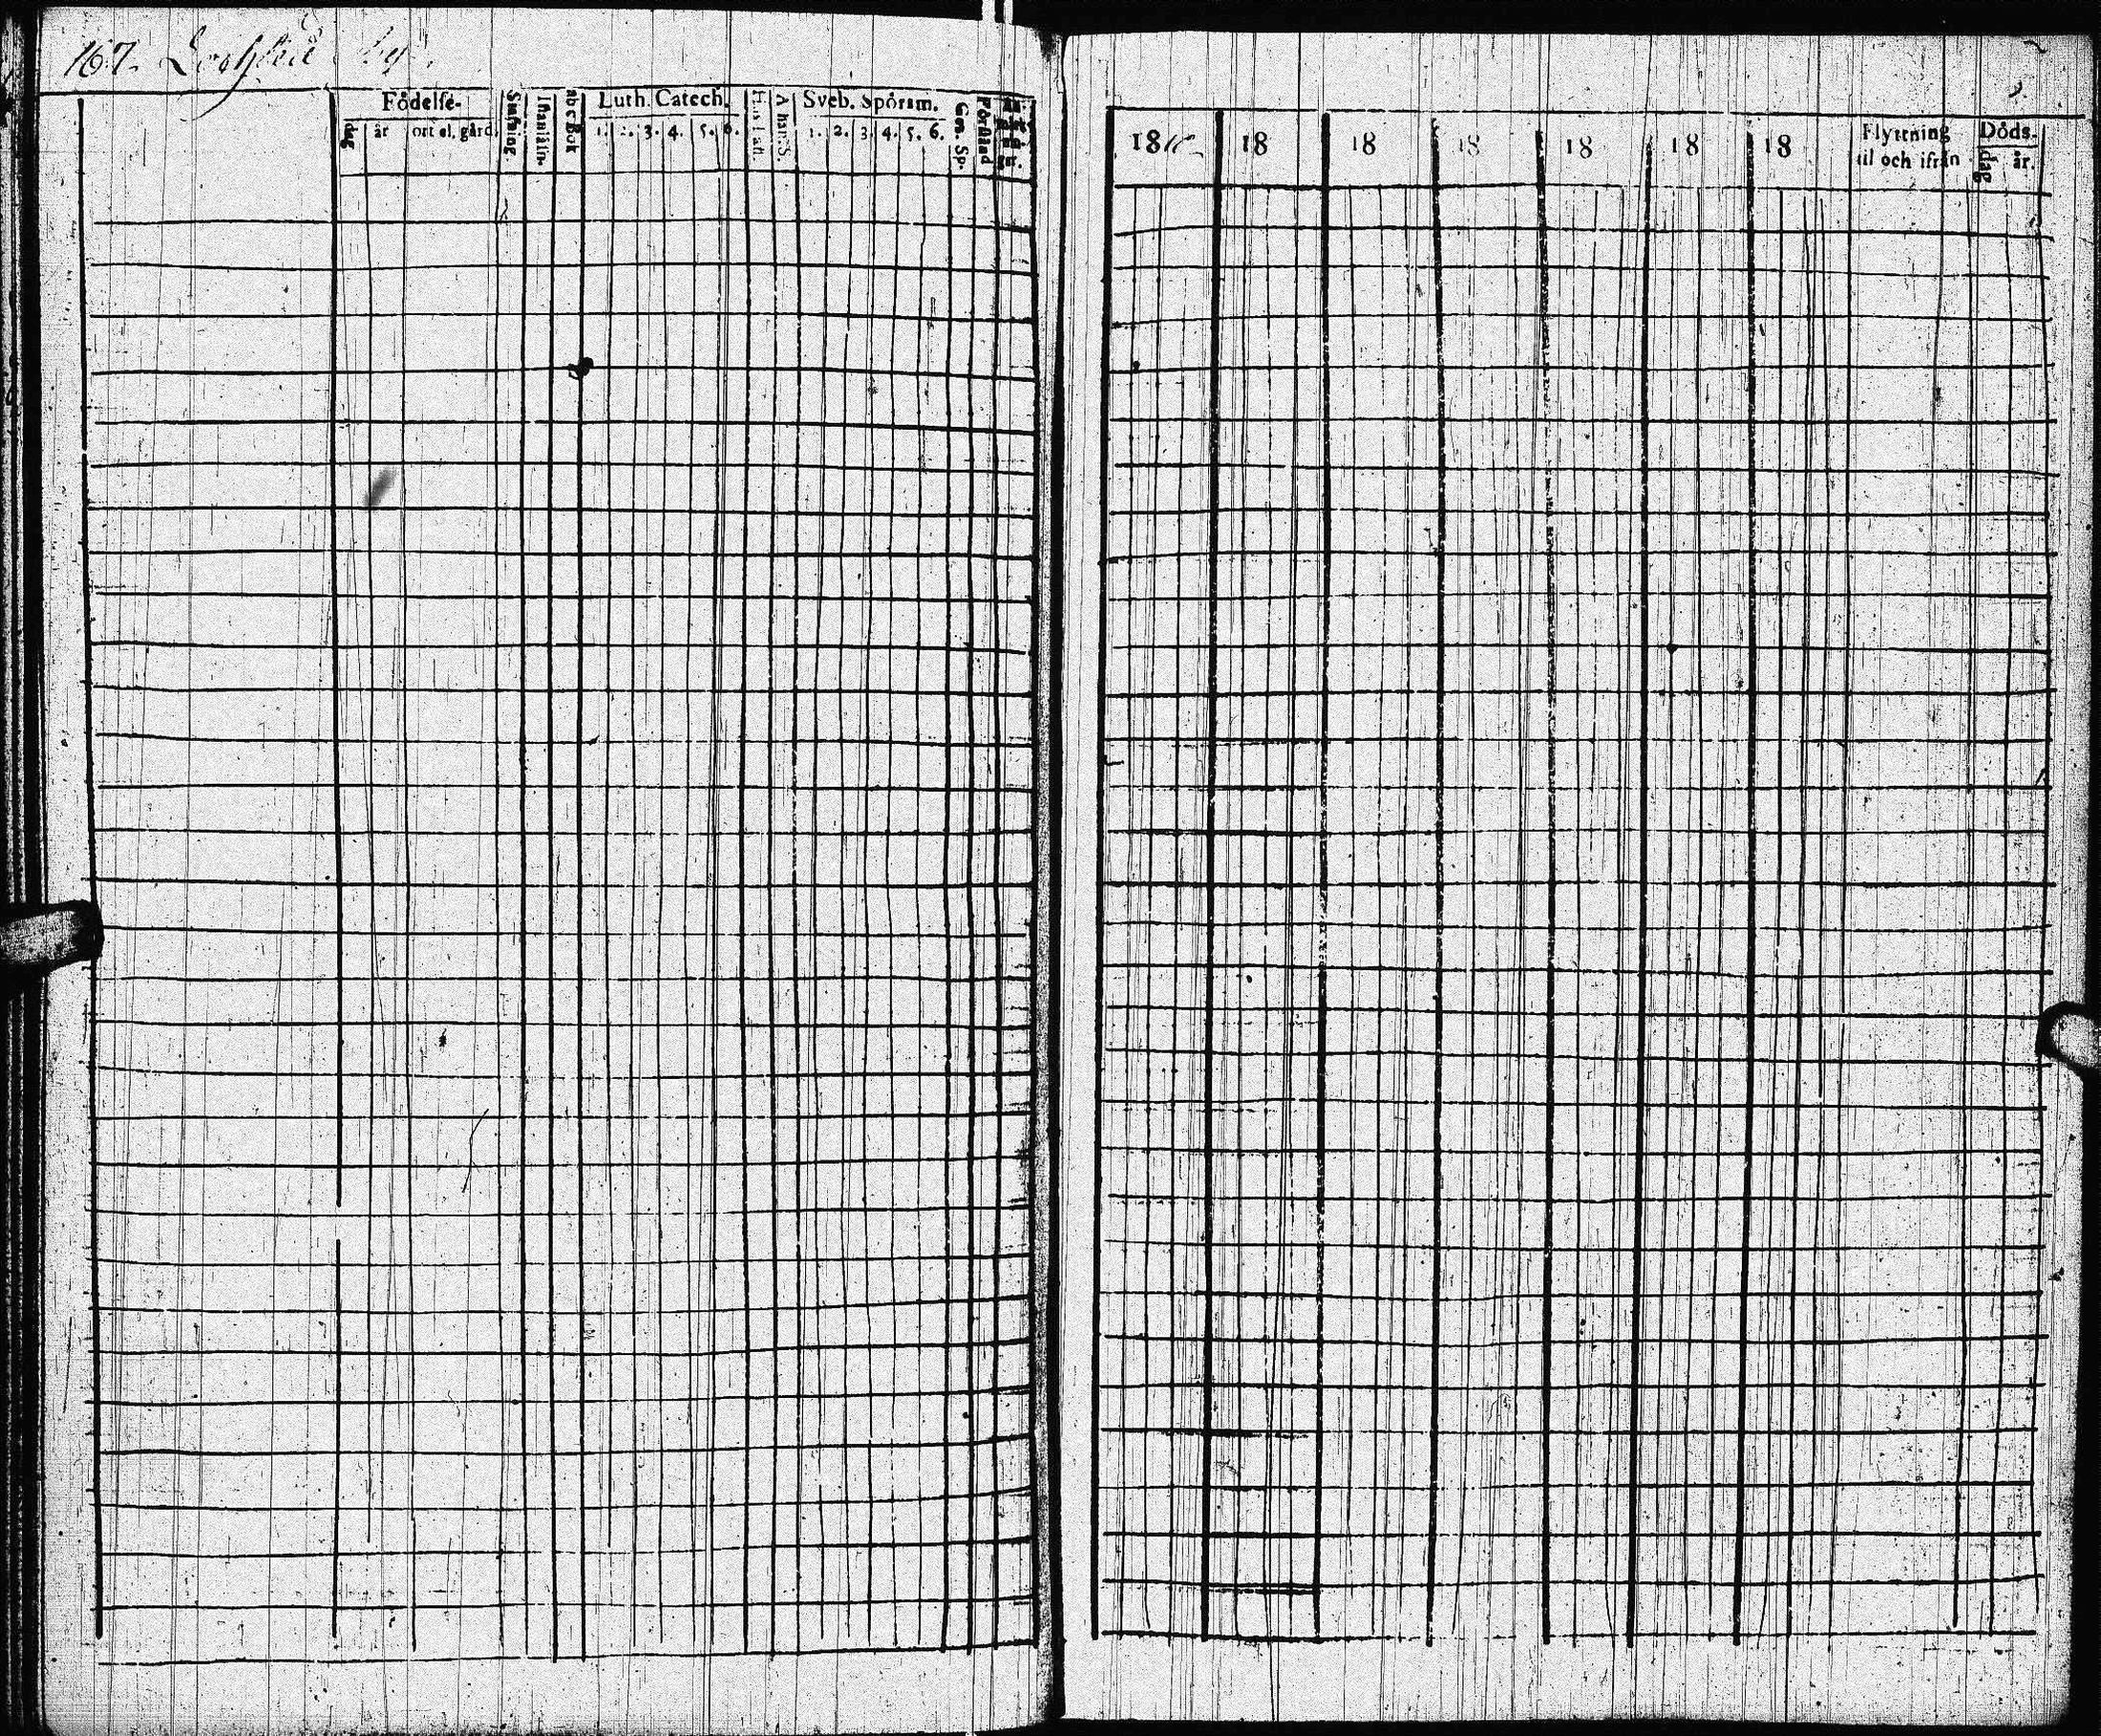 167.
Födelse-
dag år ort el. gård.
Stafning.
Innanläsn.
abc Bok
Luth. Catech.
1. 2. 3. 4. 5. 6.
Hus-Tafl.
Athan. S.
Sveb. Spörsm.
1. 2. 3. 4. 5. 6.
Gen. Sp.
Förstånd
18 18 18 18 18 18 18
Flyttning
til och ifrån
Döds-
dag år.